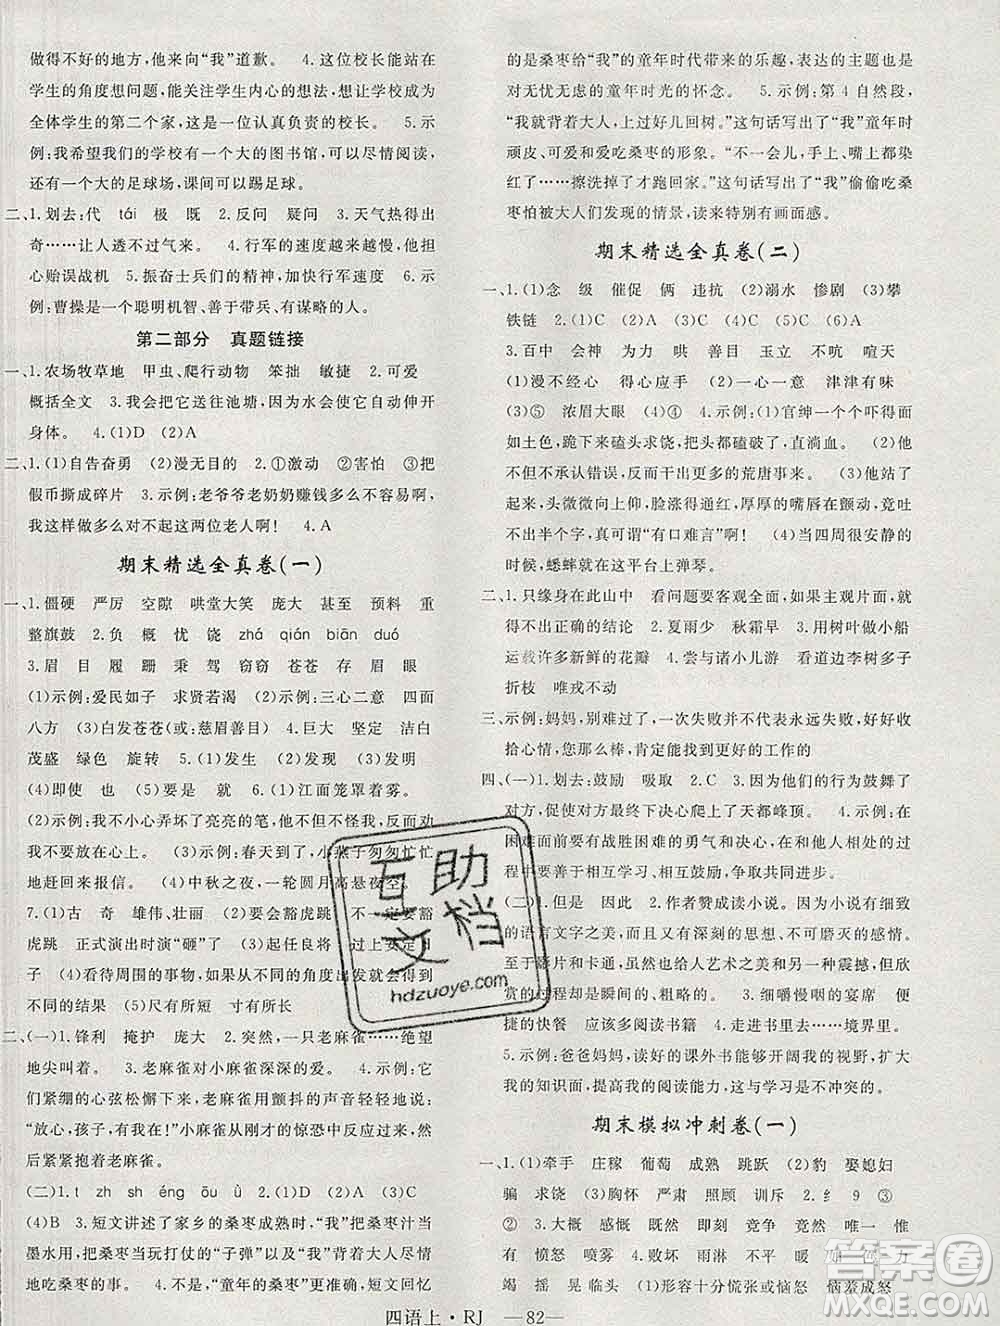 做得不好的地方,他来向“我”道歉。 4.这位校长能站在
学生的角度想问题,能关注学生内心的想法,想让学校成为
全体学生的第二个家,是一位认真负责的校长。 5.示
例:我希望我们的学校有一个大的图书馆,可以尽情阅读,
还有一个大的足球场,课间可以踢足球。
二、1.划去:代 tái 极 既 2.反问 疑问 3.天气热得出
奇……让人透不过气来。 4.行军的速度越来越慢,他担
心贻误战机 5.振奋士兵们的精神,加快行军速度 6.示
例:曹操是一个聪明机智、善于带兵、有谋略的人。
第二部分 真题链接
一、1.农场牧草地 甲虫、爬行动物 笨拙 敏捷 2.可爱
概括全文 3.我会把它送往池塘,因为水会使它自动伸开
身体。 4.(1)D (2)A
二、1.(1)自告奋勇 (2)漫无目的 2.①激动 ②害怕 ③把
假币撕成碎片 3.示例:老爷爷老奶奶赚钱多么不容易,
我这样做多么对不起这两位老人啊! 4.A
期末精选全真卷(一)
一、1.僵硬 严厉 空隙 哄堂大笑 庞大 甚至 预料 重
整旗鼓 2.负 概 忧 饶 zhá qián biān duó
3.眉 目 履 跚 秉 驾 窃 窃 若 存 眉 眼
(1)示例:爱民如子 求贤若渴 (2)示例:三心二意 四面
八方 (3)白发苍苍(或:慈眉善目) 4.巨大 坚定 洁白
茂盛 绿色 旋转 5.(1)发生 (2)发动 (3)发明
(4)即使 也 (5)都 6.(1)江面笼罩着雾。
(2)示例:我不小心弄坏了亮亮的笔,他非但不怪我,反而劝
我不要放在心上。 (3)示例:春天到了,小燕子匆匆忙忙
地赶回来报信。 (4)中秋之夜,一轮圆月高悬夜空。
7.(1)古 奇 雄伟、壮丽 (2)要会豁虎跳,一定不要豁
虎跳 正式演出时演“砸”了 (3)起任良将 过上安定日
子 (4)看待周围的事物,如果从不同的角度出发就会得到
不同的结果 (5)尺有所短 寸有所长
二、(一)1.锋利 掩护 庞大 2.突然,一只老麻雀……绝望
地尖叫着。 3.老麻雀对小麻雀深深的爱。 4.示例:我
们紧绷的心弦松懈下来,老麻雀用颤抖的声音轻轻地说:
“放心,孩子,有我在!”小麻雀从刚才的惊恐中反应过来,然
后紧紧抱着老麻雀。
(二)1.t zh sh éng ōu ǔ 2.(1)A (2)D (3)C
(4)B 3.短文讲述了家乡的桑枣成熟时,“我”把桑枣汁当
墨水用,把桑枣当玩打仗的“子弹”以及“我”和伙伴尽情
地吃桑枣的事。 4.不是,“童年的桑枣”更有趣,短文回忆
的是桑枣给“我”的童年时代带来的乐趣,表达的主题是
对无忧无虑的童年时光的怀念。 5.示例:第 4 自然段,
“我就背着大人,上过好几回树。”这句话写出了“我”童年时
顽皮、可爱和爱吃桑枣的形象。“不一会儿,手上、嘴上都染
红了……擦洗掉了才跑回家。”这句话写出了“我”偷偷吃桑
枣怕被大人们发现的情景,读来特别有画面感。
期末精选全真卷(二)
一、1.(1)念 级 催促 俩 违抗 (2)溺水 惨剧 (3)攀
铁链 2.(1)C (2)A (3)C (4)C (5)C (6)A
3.百中 会神 为力 哄 善目 玉立 不吭 喧天
(1)漫不经心 得心应手 (2)一心一意 津津有味
(3)⑤ 浓眉大眼 (4)④ 4.示例:(1)官绅一个个吓得面
如土色,跪下来磕头求饶,把头都磕破了。 (2)居然他
不但不承认错误,反而干出更多的荒唐事来。 (3)他站了
起来,头微微向上仰,脸涨得通红,厚厚的嘴唇在颤动,竟吐
不出半个字来,真可谓“有口难言”啊! (4)当四周很安静的
时候,蟋蟀就在这平台上弹琴。
二、1.只缘身在此山中 看问题要客观全面,如果主观片面,就
得不到正确的结论 2.夏雨少 秋霜早 3.用树叶做小船
运载许多新鲜的花瓣 4.尝与诸小儿游 看道边李树多子
折枝 唯戎不动
三、示例:妈妈,别难过了,一次失败并不代表永远失败,好好收
拾心情,您那么棒,肯定能找到更好的工作的
四、(一)1.划去:鼓励 吸取 2.C 3.因为他们的行为鼓舞了
对方,促使对方最终下决心爬上了天都峰顶。 4.示例:在
困难面前要有战胜困难的勇气和决心,在和他人相处的过
程中要善于相互学习、相互鼓励,争取共同进步。
(二)1.不但 而且 2.作者赞成读小说。小说有细致
的语言文字之美,而且有深刻的思想、不可磨灭的感情。
至于影片和卡通,虽然也给人艺术之美和另一种震撼,但欣
赏的过程却是瞬间的、粗略的。 3.细嚼慢咽的宴席 便
捷的快餐 应该多阅读书籍 4.走进书里……境界里。
5.示例:爸爸妈妈,阅读好的课外书能够开阔我的视野,扩大
我的知识面,提高我的阅读能力,这与学习是不冲突的。
期末模拟冲刺卷(一)
一、1.(1)牵手 庄稼 葡萄 成熟 跳跃 (2)豹 娶媳妇
骗 求饶 (3)胸怀 严肃 照顾 训斥 2.纟 9 ③
② 3.大概 感慨 既然 即刻 竞争 竟然 唯一 惟
有 愤怒 喷雾 4.败坏 雨淋 不平 暖
竭 摇 晃 临头 (1)形容十分慌张或惊恐 恼羞成怒
四语上·RJ —82—
互助文档
hdzuoye.com
答案圈
MXQE.COM